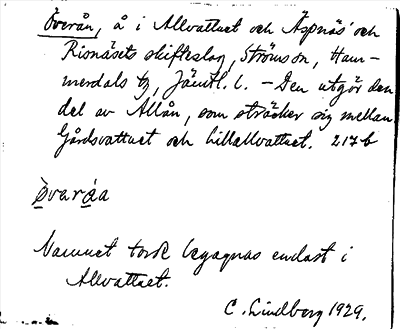 Överån, å i Allvattnet och Äspnäs och
Risnäsets skifteslag, Strömson, Ham-
merdals tg, Jämtl. l. – Den utgör den
del av Allån, som sträcker sig mellan
Gårdsvattnet och Lillallvattnet. 217b
Namnet torde begagnas endast i
Allvattnet.
C. Lindberg 1929.